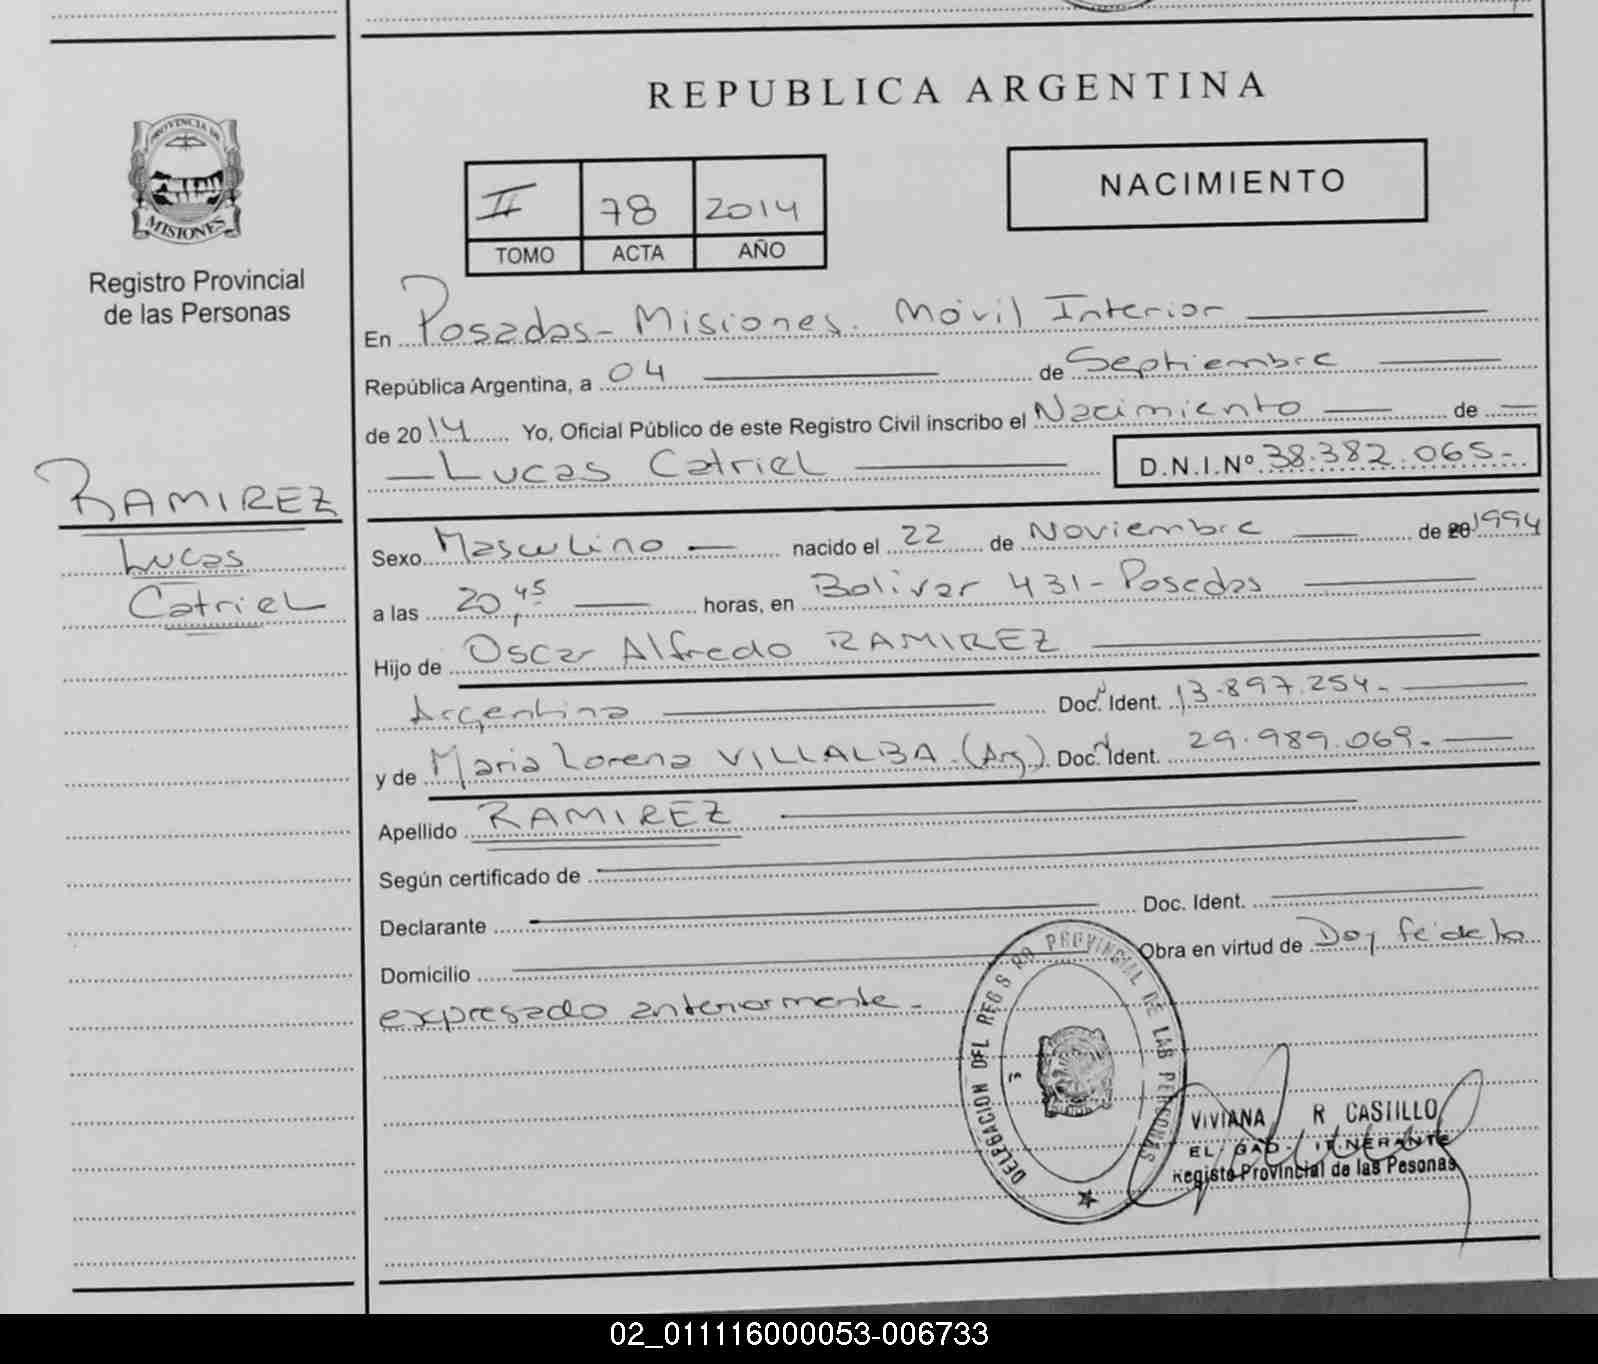 REPUBLICA ARGENTINA
PROVINCIA DE
MISIONES
Registro Provincial
de las Personas
NACIMIENTO
II 78 2014
TOMO ACTA AÑO
En Posadas - Misiones. Móvil Interior
República Argentina, a 04 de Septiembre
de 2014 Yo, Oficial Público de este Registro Civil inscribo el Nacimiento de
Lucas Catriel D.N.I.Nº 38.382.065.-
RAMIREZ
Lucas
Catriel
Sexo Masculino nacido el 22 de Noviembre de 20 1994
a las 20,45 horas, en Bolivar 431 - Posadas
Hijo de Oscar Alfredo RAMIREZ
Argentina Doc. Ident. 13.897.254.-
y de Maria Lorena VILLALBA. (Arg.) Doc. Ident. 29.989.069.-
Apellido RAMIREZ
Según certificado de
Declarante Doc. Ident.
Domicilio Obra en virtud de Doy fe de lo
expresado anteriormente.-
DELEGACION DEL REGISRO PROVINCIAL DE LAS PERSONAS
VIVIANA R CASTILLO
EL GAD ITINERANTE
Registo Provincial de las Pesonas
02_011116000053-006733